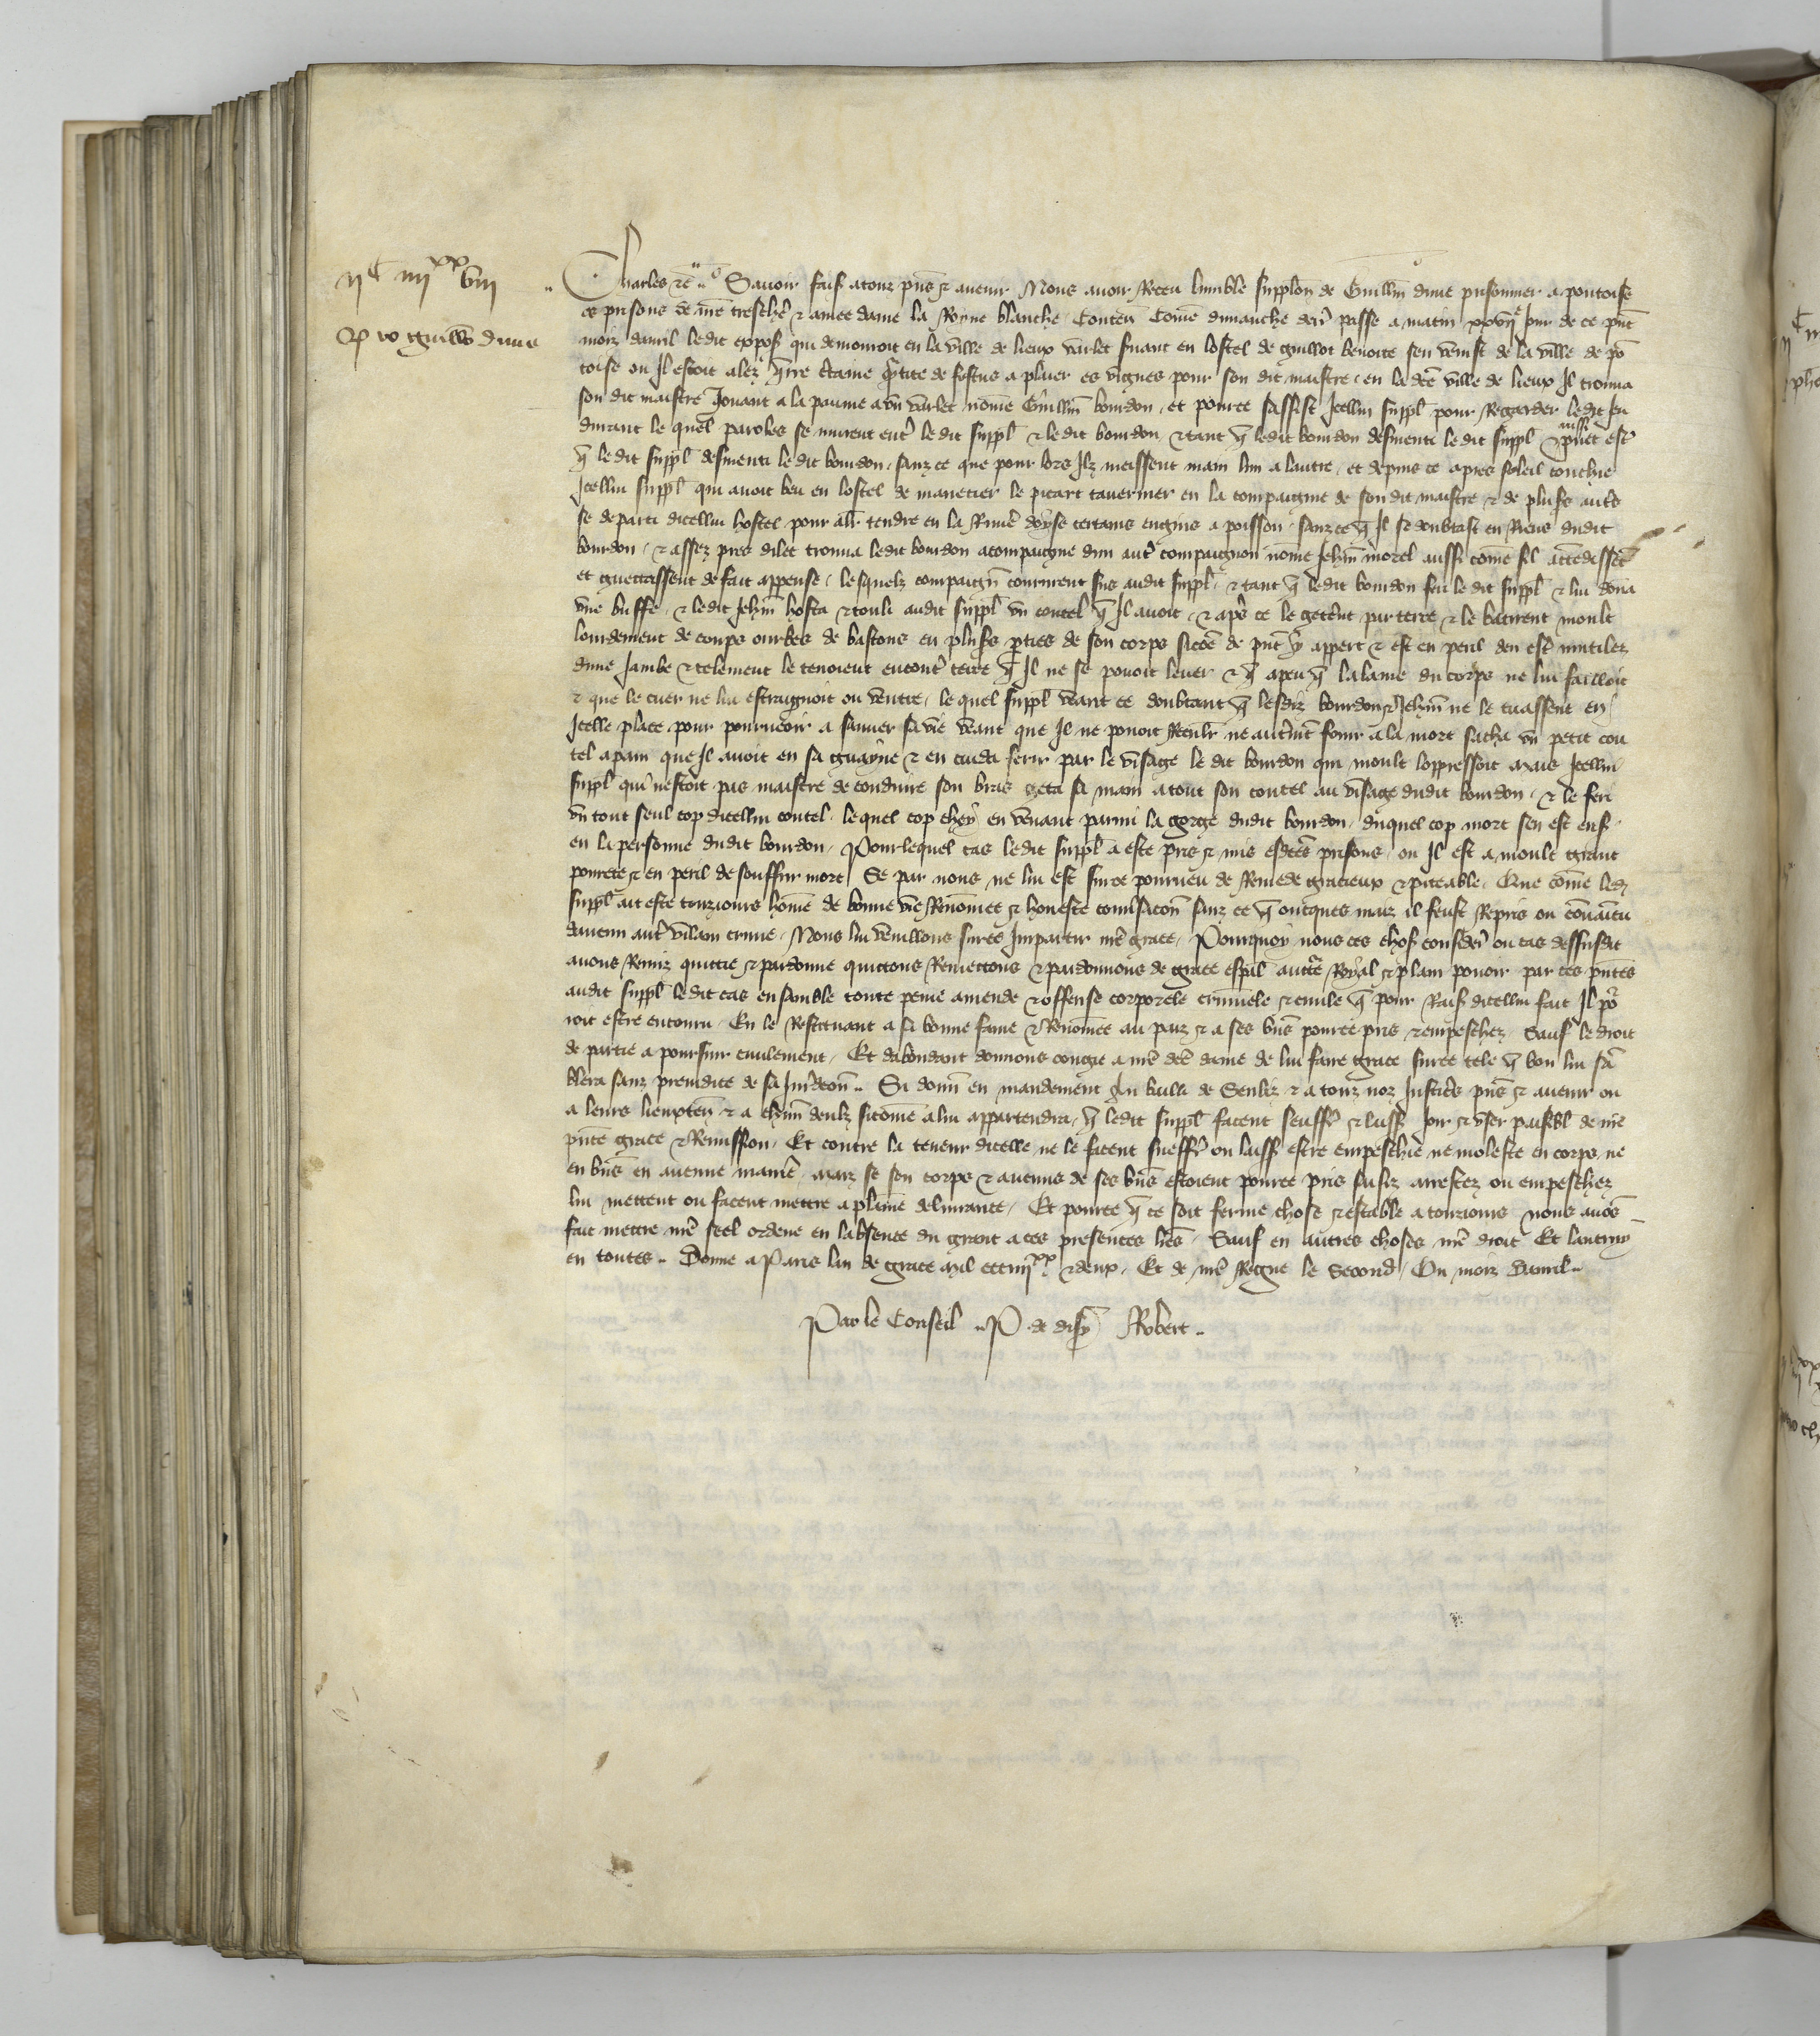 IIC IIIIXX VIII
Pro Guillo Dune
Charles etc. Savoir fais. a touz pns et avenir Nous avoir Receu lumble supplon de Guillm dune prisonnier a pontoise
es prisons de nre treschr et amee dame la Royne blanche Conten Come dimanche dern passe a matin XXVIIe jour de ce pnt
mois davril ledit expos. qui demouroit en la ville de lieux varlet svant en lostel de guillot benoite sen venist de la ville de po
toise ou Il estoit alez qrre ctaine qtite de festus a plaier es vignes pour son dit maistre, en la dce ville de lieux Il trouva
son dit maistre Jouant a la paume a un varlet nome Guillm bourdon, et pource sassist Icellui suppl pour Regarder ledit Jeu
durant le quel paroles se murent entr le dit suppl et ledit bourdon, et tant q ledit bourdon desmenti le dit suppl et puet aussi estr
q le dit suppl desmenti le dit bourdon, sanz ce que pour lors Ilz meissent main lun a lautre, et depuis ce apres soleil couchie
Icellui suppl qui avoit beu en lostel de manecier le picart tavernier en la compaignie de son dit maistre et de plus autrs
se departi dicellui hostel pour alr tendre en la Rivier doyse certains engins a poisson, sanz ce q Il se doubtast en Riens dudit
bourdon, et assez pres dilec trouva ledit bourdon acompaigne dun autr compaignon nome Jehan morel aussi come sil attedessent
et guettassent de fait appense, lesquelz compaignos coururent sus audit suppl, et tant q ledit bourdon feri le dit suppl et lui dona
une buffe, et ledit Jehan hosta et toli audit suppl un coutel q Il avoit, et aps ce le geterent par terre et le batirent moult
lourdement de coups ourbes de bastons en pluss pties de son corps sicoe de pnt y appert et est en peril den estr mutilez
dune Jambe et telement le tenoient encontr terre q Il ne se povoit lever et q a peu q lalaine du corps ne lui failloit
et que le cuer ne lui estraignoit ou ventre, le quel suppl veant ce doubtant q lesdiz bourdon et Jehan ne le tuassent en
Icelle place pour pourveoir a sauver sa vie veant que Il ne povoit Reculr ne autrmt fouir a la mort sacha un petit cou
tel a pain que Il avoit en sa guayne et en cuida ferir par le visage le dit bourdon qui moult loppressoit mais Icellui
suppl qui nestoit pas maistre de conduire son bras geta sa main a tout son coutel au visage dudit bourdon, et le feri
un tout seul cop dicellui coutel, lequel cop chey en venant parmi la gorge dudit bourdon, duquel cop mort sen est ens.
en la personne dudit bourdon, Pour lequel cas ledit suppl a este pris et mis esdces prisons, ou Il est a moult grant
povrete et en peril de souffrir mort Se par nous ne lui est surce pourveu de Remede gracieux et piteable, Que come led
suppl ait este touzjours home de bonne vie Renomee et honeste conversacon sanz ce q oncques mais il feust Repris ou convaincu
daucun autr villain crime, Nous lui vueillons surce Impartir nre grace, Pourquoy nous ces chos considerr ou cas dessusdit
avons Remiz quittie et pardonne quittons Remettons et pardonnons de grace espal auctte Royal et plain povoir par ces pntes
audit suppl ledit cas ensamble toute peine amende et offense corporele criminele et civile q pour Rais. dicellui fait Il po
roit estre encouru, En le Restituant a sa bonne fame et Renomee au pais et a ses bns pource pris et empeschez, Sauf le droit
de partie a poursuir civilement, Et dabondant donnons congie a nre dce dame de lui faire grace surce tele q bon lui sa
blera sanz preiudice de sa Juridicon. Si donn en mandement au bailli de Senliz et a touz noz Justicirs pns et avenir ou
a leurs lieuxten et a chun deulz sicome a lui appartendra, q ledit suppl facent seuffr et laiss. joir et user paisibl de nre
pnte grace et Remission, Et contre la teneur dicelle ne le facent sueffr ou laiss. estre empeschie ne moleste en corps ne
en bns en aucune manie, maiz se son corps et aucuns de ses bns estoient pource pris saisiz arrestez ou empeschez
lui mettent ou facent mettre a plaine delivrance, Et pource q ce soit ferme chose et estable a touzjours nous avos
fait mettre nre seel ordene en labsence du grant a ces presentes lres, Sauf en autres choses nre droit Et lautruy
en toutes. Donne a Paris lan de grace mil CCCIIIIXX et deux, Et de nre Regne le Second, Ou moiz Davril.
Par le Conseil. P. de disy Robert.